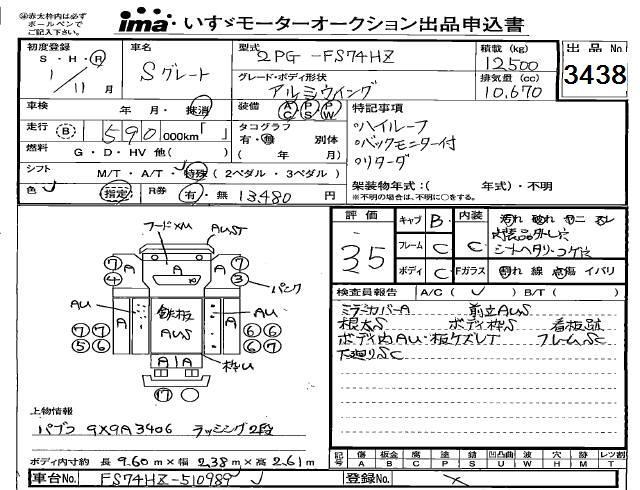 ※赤太枠内は必ず
ボールペンで
ご記入下さい。
ima いすゞモーターオークション出品申込書
初度登録 S・H・R 1/11月
車名 Sグレート
型式 2PG-FS74HZ
積載 (kg) 12,500
出品No 3438
グレード・ボディ形状 アルミウイング
排気量 (cc) 10,670
車検 年・月・抹消
装備 AC PS PW
特記事項
走行 B 590 000km
タコグラフ 有・無 別体 ( 年 月)
・ハイルーフ
・バックモニター付
・リターダ
燃料 G・D・HV 他( )
シフト M/T・A/T・特殊 (2ペダル・3ペダル)
色 指定 R券 有・無 13,480 円
架装物年式:( 年式)・不明
※不明の場合は、不明に○をする。
評価 35
キャブ B
フレーム C
ボディ C
内装 C
Fガラス
割れ 線 点傷 イバリ
シートヘタリ・コゲ穴
検査員報告 A/C( ) B/T( )
ミラーカバーA 前立AUS
根太S ボディ枠S 看板跡
ボディ内AU・板ケズレT フレームSC
下廻りSC
フードXM AUST
7 4 A A A 7 3 パンク
AU A 鉄板 AUS A AU
7 7 5 6 6 6 6 7
A A 枠U
17
上物情報
パブコ 9X9A3406 ラッシング2段
ボディ内寸約 長 9.60m×幅 2.38m×高 2.61m
記号 傷 A 板金 B 腐 C 塗 P 錆 S 凹凸曲 U 波 W 穴 H 跡 M レツ割 T
車台No. FS74HZ-510989
登録No.